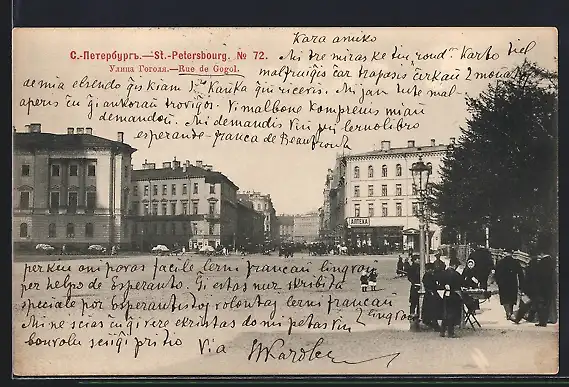 С.-Петербургъ.—St.-Petersbourg. № 72.
Улица Гоголя.—Rue de Gogol.
Kara amiko
Mi tre miras ke vin rond karto tiel
malfruiĝis ĉar trapasis ĉirkaŭ 2 monatoj
de mia elsendo ĝis kiam vi Kartka ĝin ricevis. Mi jam tute mal-
aperis ĉu ĝi ankoraŭ trovigos. Vi malbone komprenis mian
demandon. Mi demandis vin pri lernolibro
esperanta-franca de Beaufront
АПТЕКА
per kiu oni povas facile lerni francan lingvon
per helpo de Esperanto. Ĝi estas nur skribita
speciale por Esperantistoj volontaj lerni francan
Mi ne scias ĉu ĝi vere ekzistas do mi petas vin lingvon
bonvolu sciigi pri tio Via